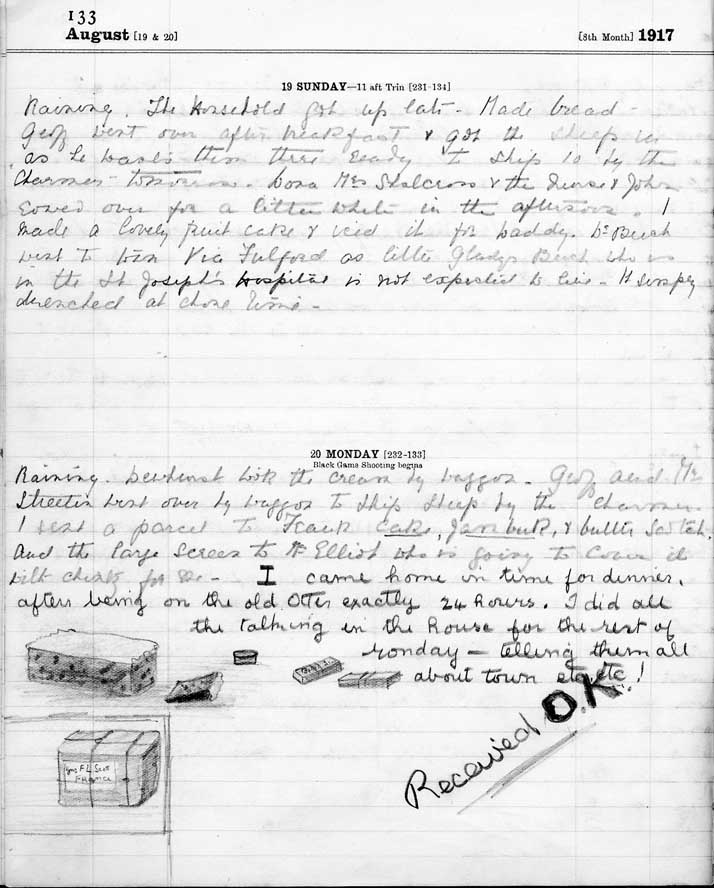 133
August [19 & 20] [8th Month] 1917
19 SUNDAY—11 aft Trin [231-134]
Raining. The Household got up late - Made bread -
Geoff went over after breakfast & got the sheep in
as he wants them there ready to ship 10 by the
Charmer tomorrow. Mrs Shalcross & the & John
rowed over for a little while in the afternoon. I
made a lovely fruit cake & iced it for paddy. Mr Burch
went to town Via Fulford as little Gladys Burch who is
in the St Joseph's Hospital is not expected to live. H Simply
drenched at chore time -
20 MONDAY [232-133]
Black Game Shooting begins
Raining. took the cream by waggon. Geoff and Mr
Streeten went over by waggon to ship sheep by the Charmer
I sent a parcel to Frank cake, Jambuk, & butter Scotch.
And the large screen to Mr Elliot who is going to cover it
with for me - I came home in time for dinner,
after being on the old Otter exactly 24 hours. I did all
the talking in the house for the rest of
Monday — telling them all
about town etc etc!
Received O.K.
F L Scott
France